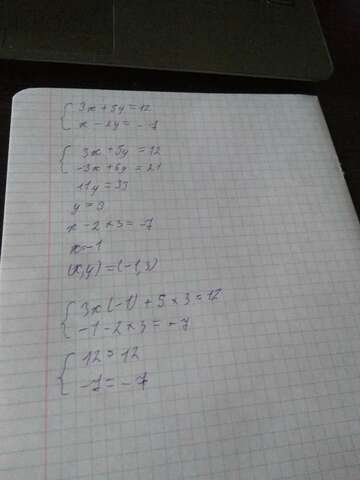 3x+5y=12
x-2y=-7
3x+5y=12
-3x+6y=21
11y=33
y=3
x-2×3=-7
x=-1
(x,y)=(-1,3)
3×(-1)+5×3=12
-1-2×3=-7
12=12
-7=-7